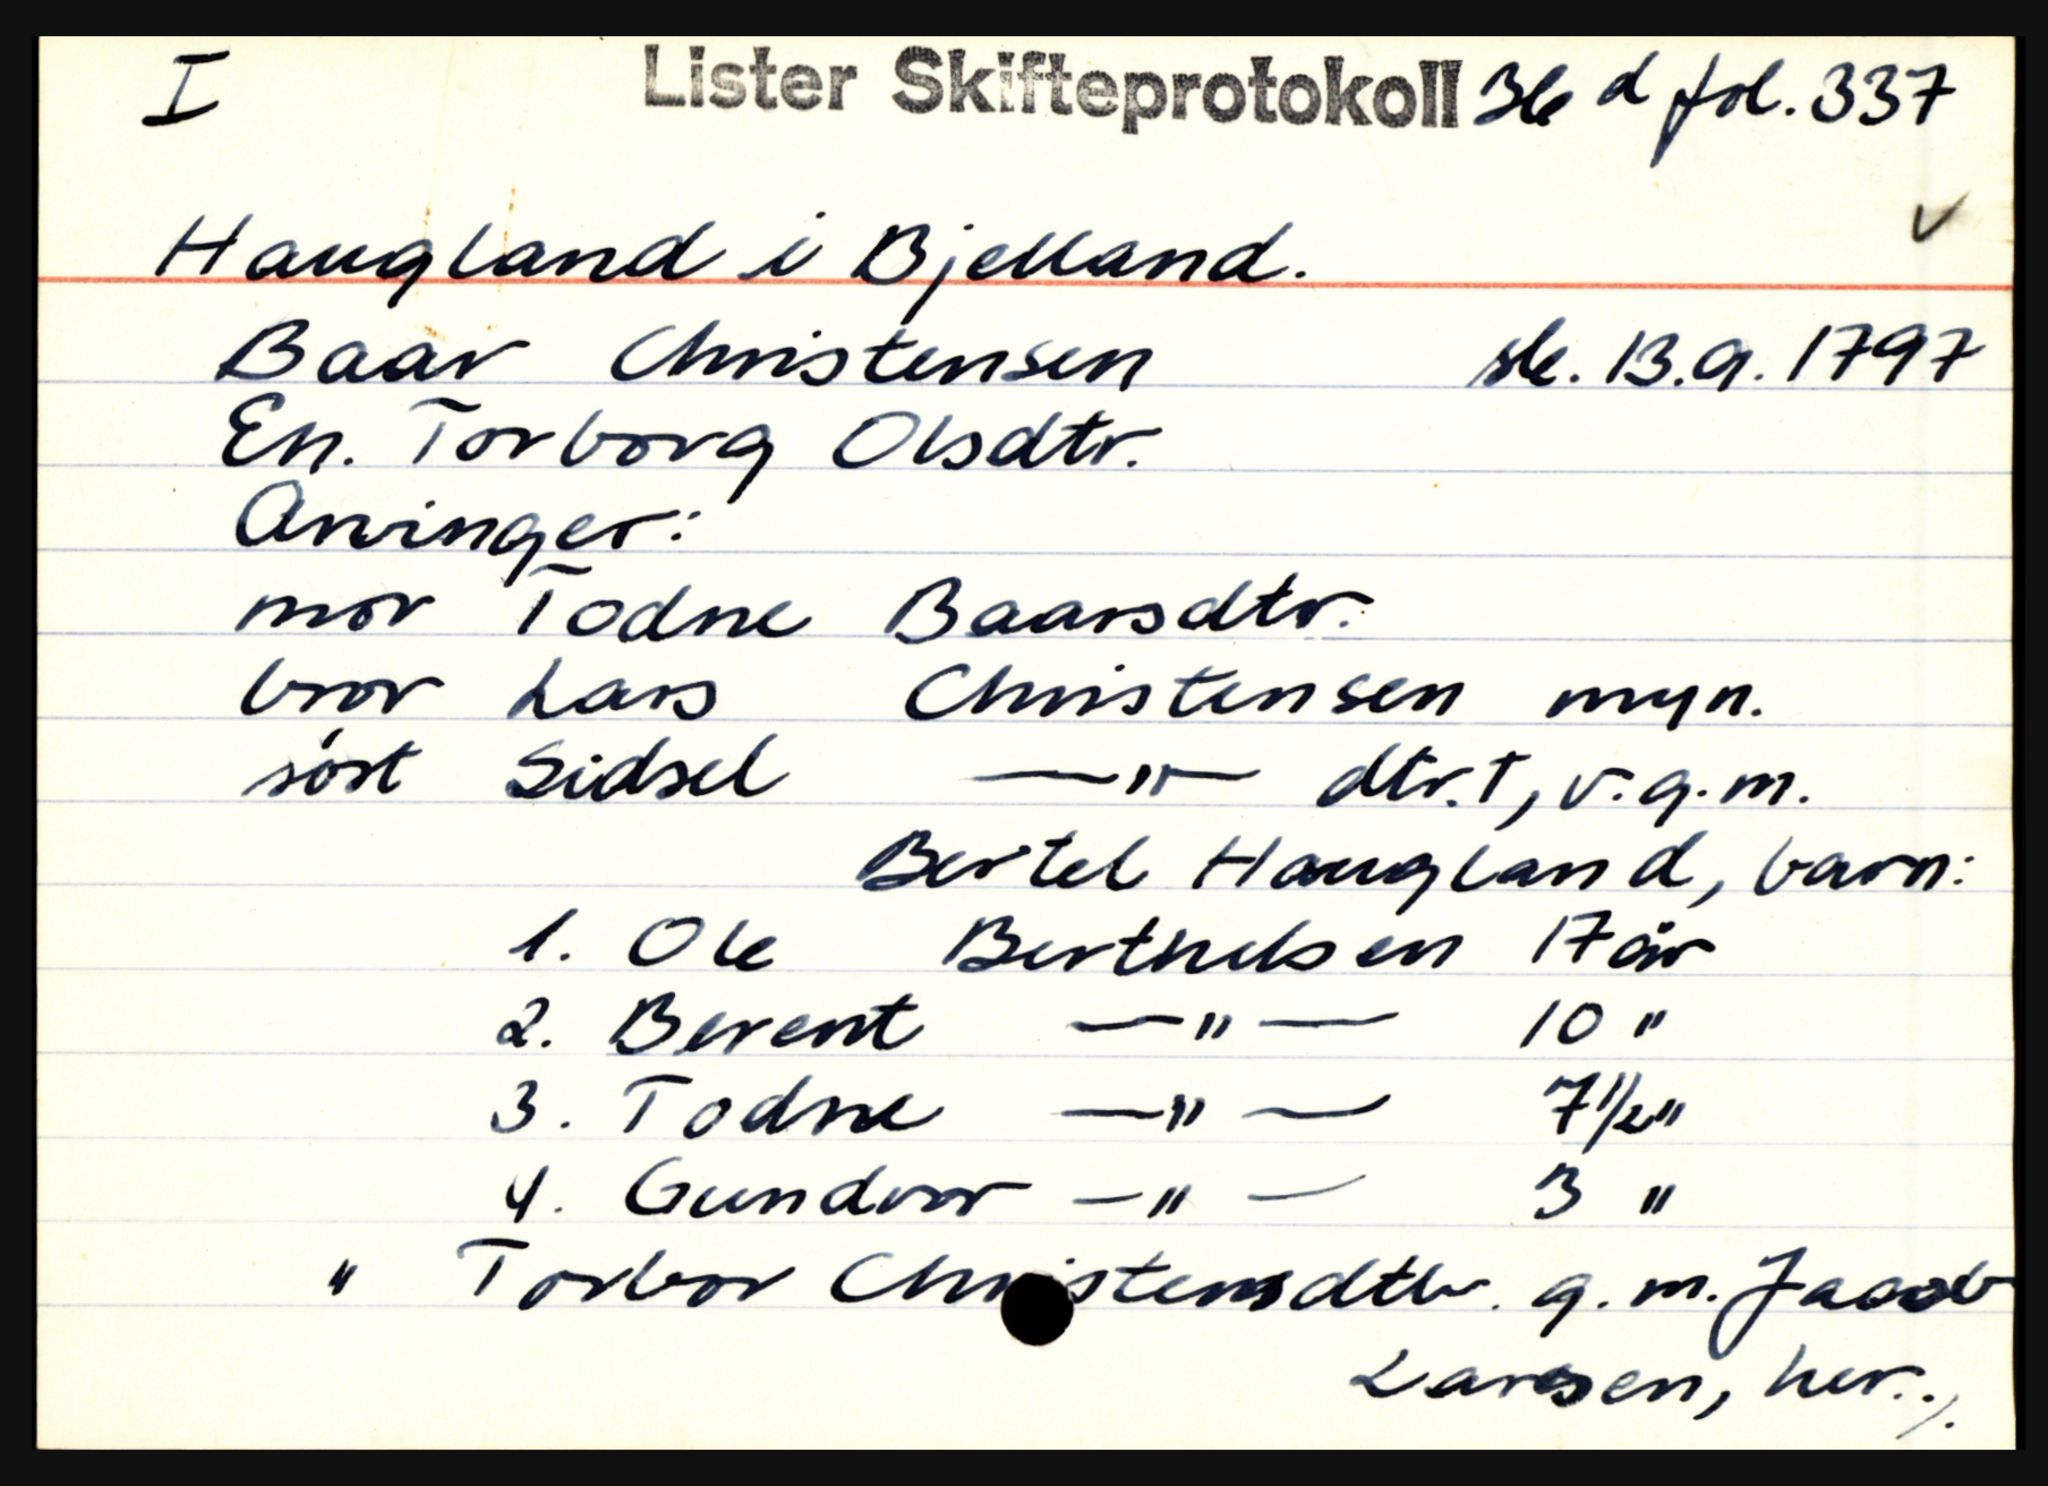 I Lister Skifteprotokoll 36 d fol. 337
v
Haugland i Bjelland.
Baar Christensen sk. 13.9.1797
En. Torborg Olsdtr.
Arvinger:
mor Todne Baarsdtr.
bror Lars Christensen myn.
søst Sidsel —"— dtr.†, v.g.m.
Bertel Haugland, barn:
1. Ole Berthelsen 17 år
2. Berent —"— 10 "
3. Todne —"— 7 1/2 "
4. Gundvor —"— 3 "
" Torbor Christensdtr. g.m. Jacob
Larsen, her../.